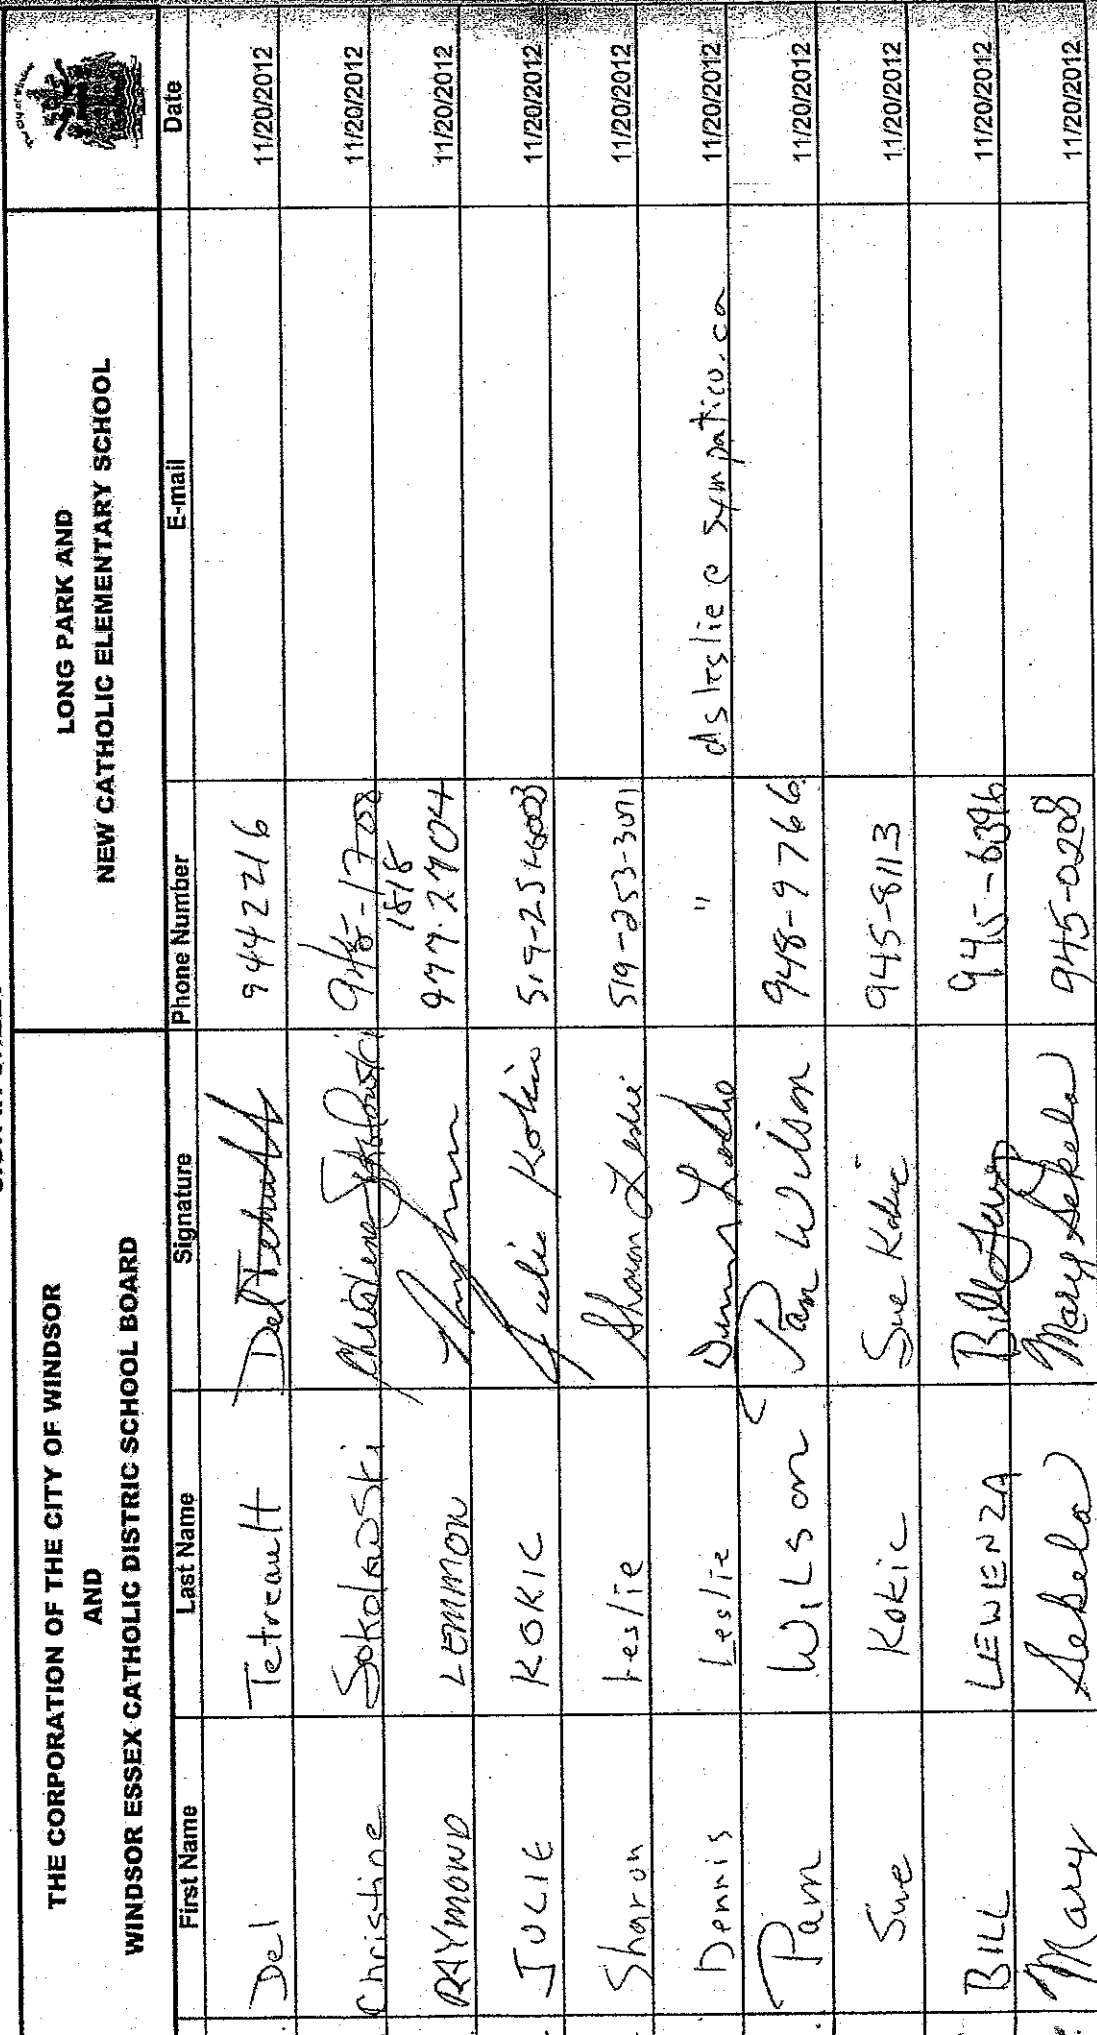 THE CORPORATION OF THE CITY OF WINDSOR
AND
WINDSOR ESSEX CATHOLIC DISTRIC SCHOOL BOARD
LONG PARK AND
NEW CATHOLIC ELEMENTARY SCHOOL
First Name Last Name Signature Phone Number E-mail Date
Del Tetreault Del Tetreault 944 2216 11/20/2012
Christine Sokolowski Christine Sokolowski 948-1708 11/20/2012
RAYMOND LEMMON 1818 11/20/2012
JULIE KOKIC Julie Kokic 519-25 11/20/2012
Sharon Leslie Sharon Leslie 519-253-3071 11/20/2012
Dennis Leslie Dennis Leslie " dsleslie@sympatico.ca 11/20/2012
Pam WILSON Pam Wilson 948-9766 11/20/2012
Sue Kokic Sue Kokic 945-8113 11/20/2012
BILL LEWENZA Bill 945-6396 11/20/2012
Mary Sebela Mary Sebela 945-0208 11/20/2012